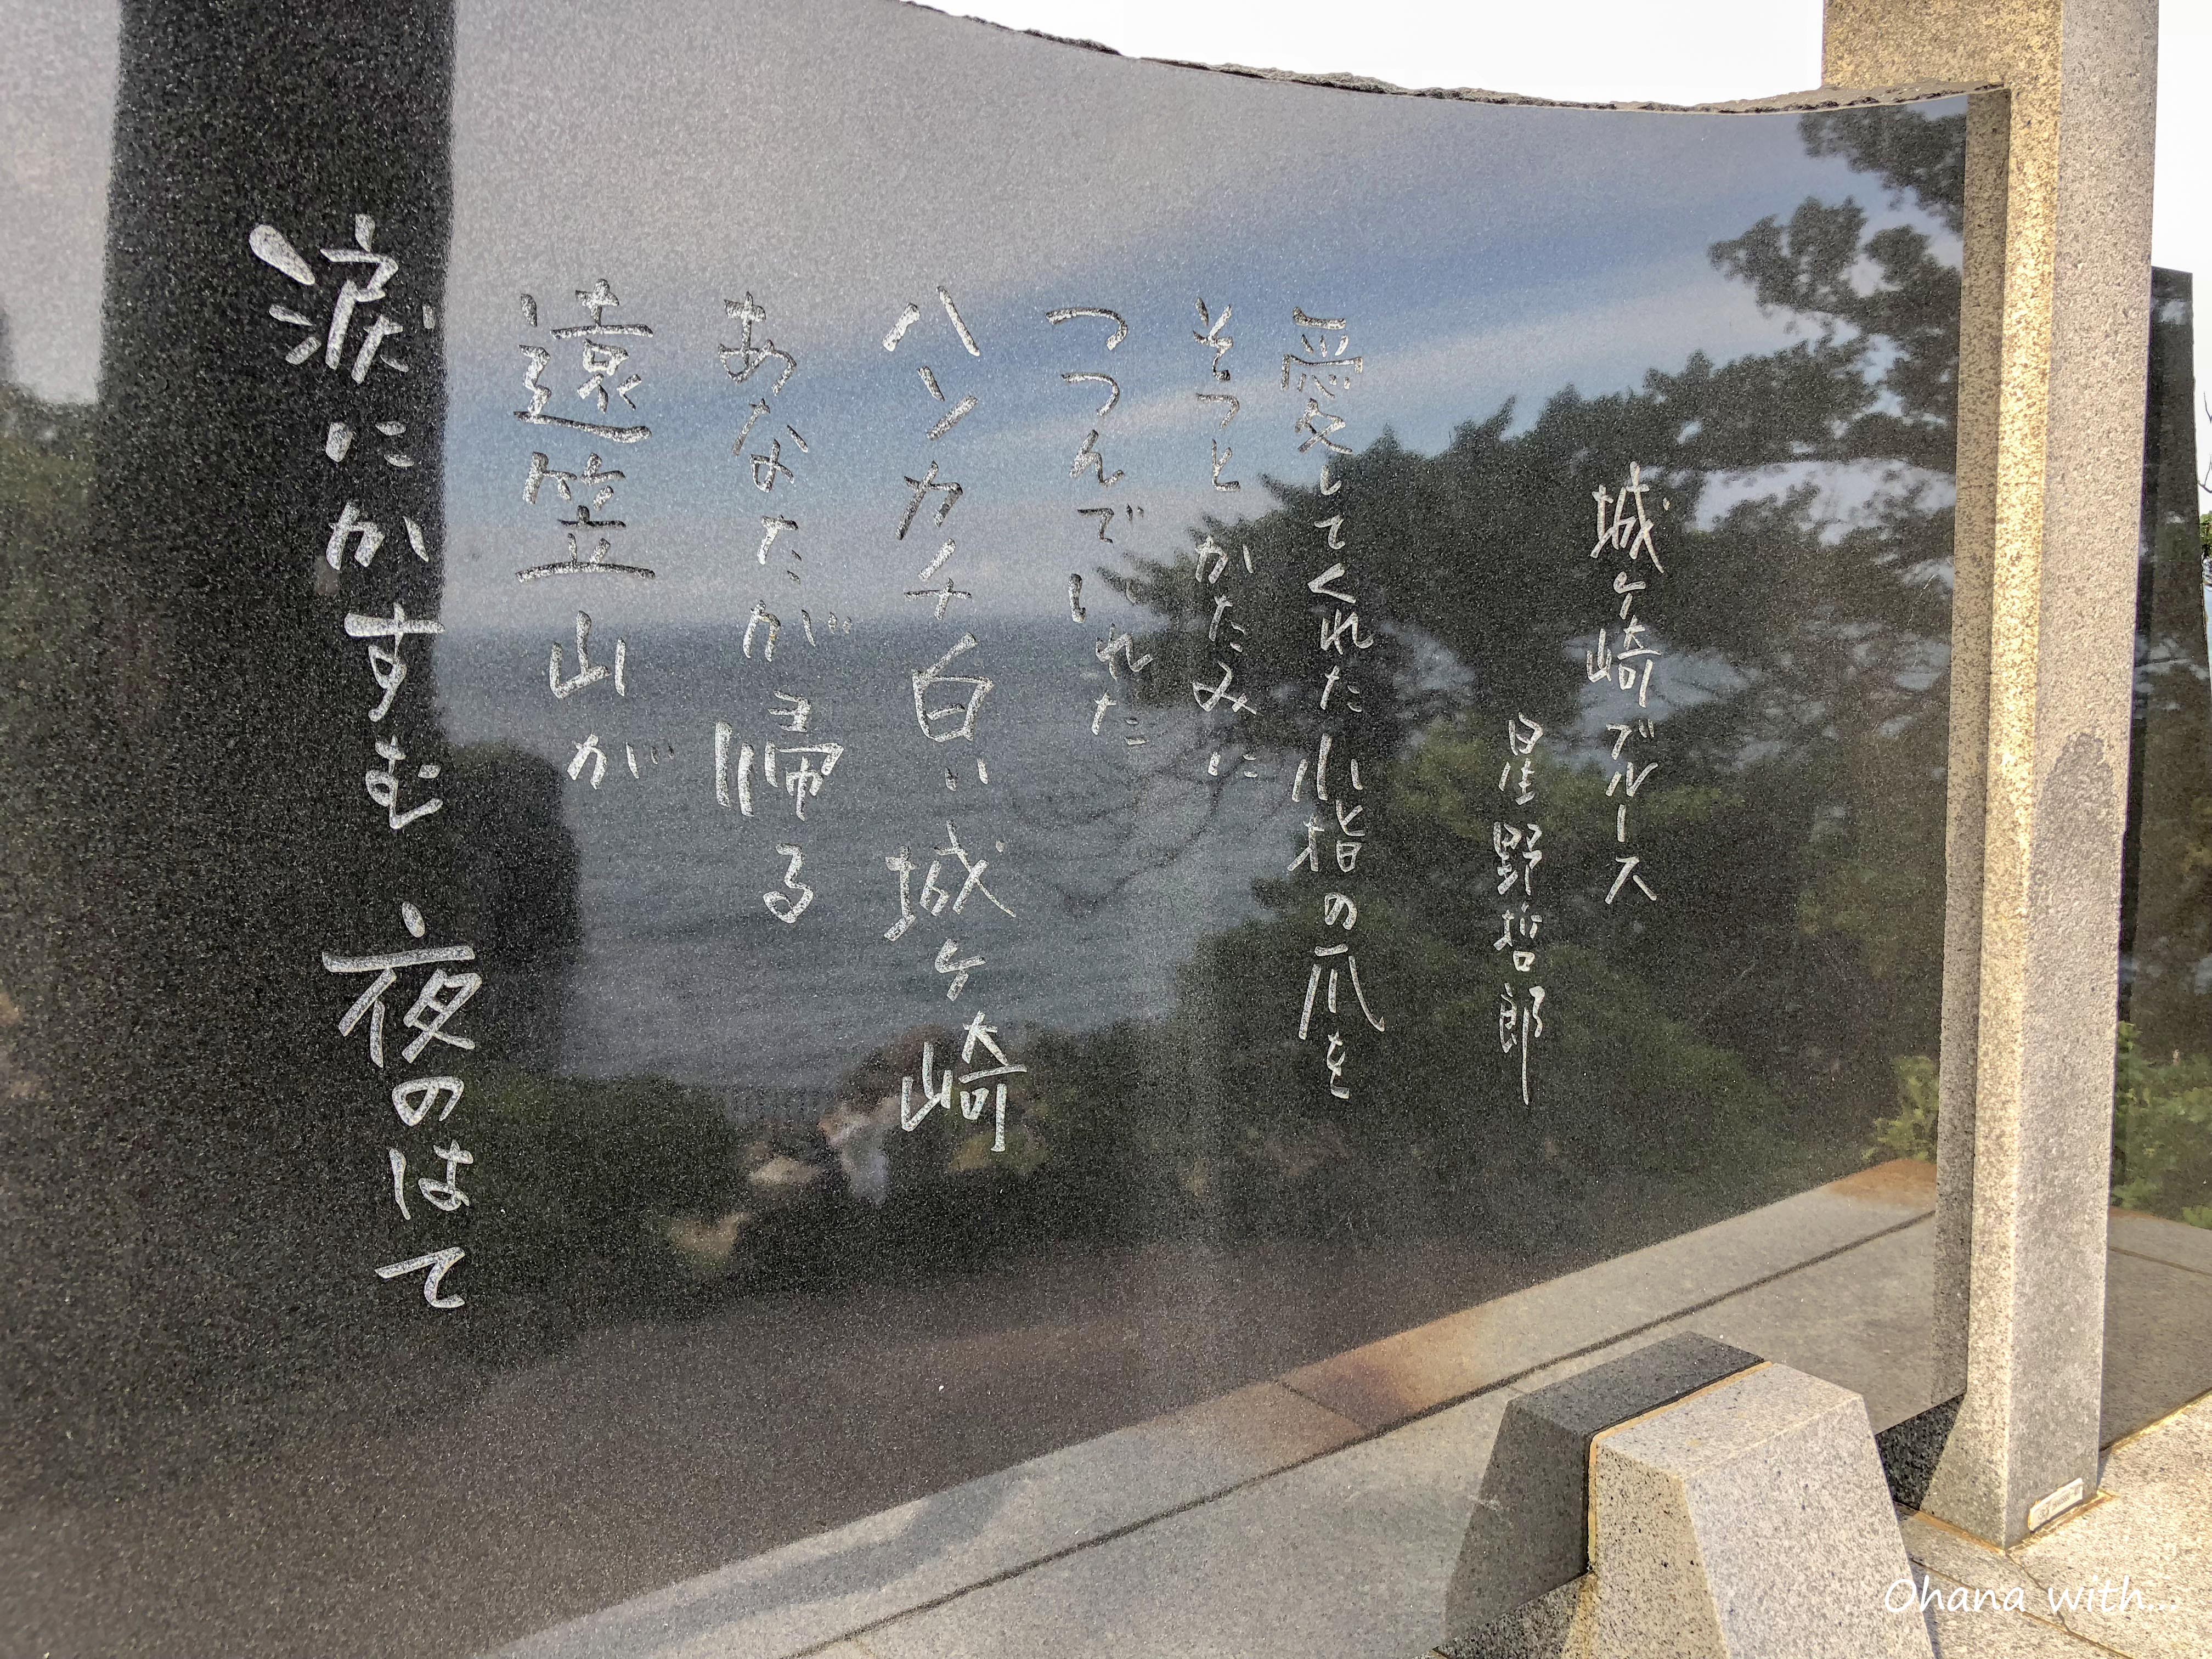 城ヶ崎ブルース
星野哲郎
愛してくれた小指の爪を
そっと かたみに
つつんでいれた
ハンカチ白い 城ヶ崎
あなたが帰る
遠笠山が
涙にかすむ 夜のはて
Ohana with...